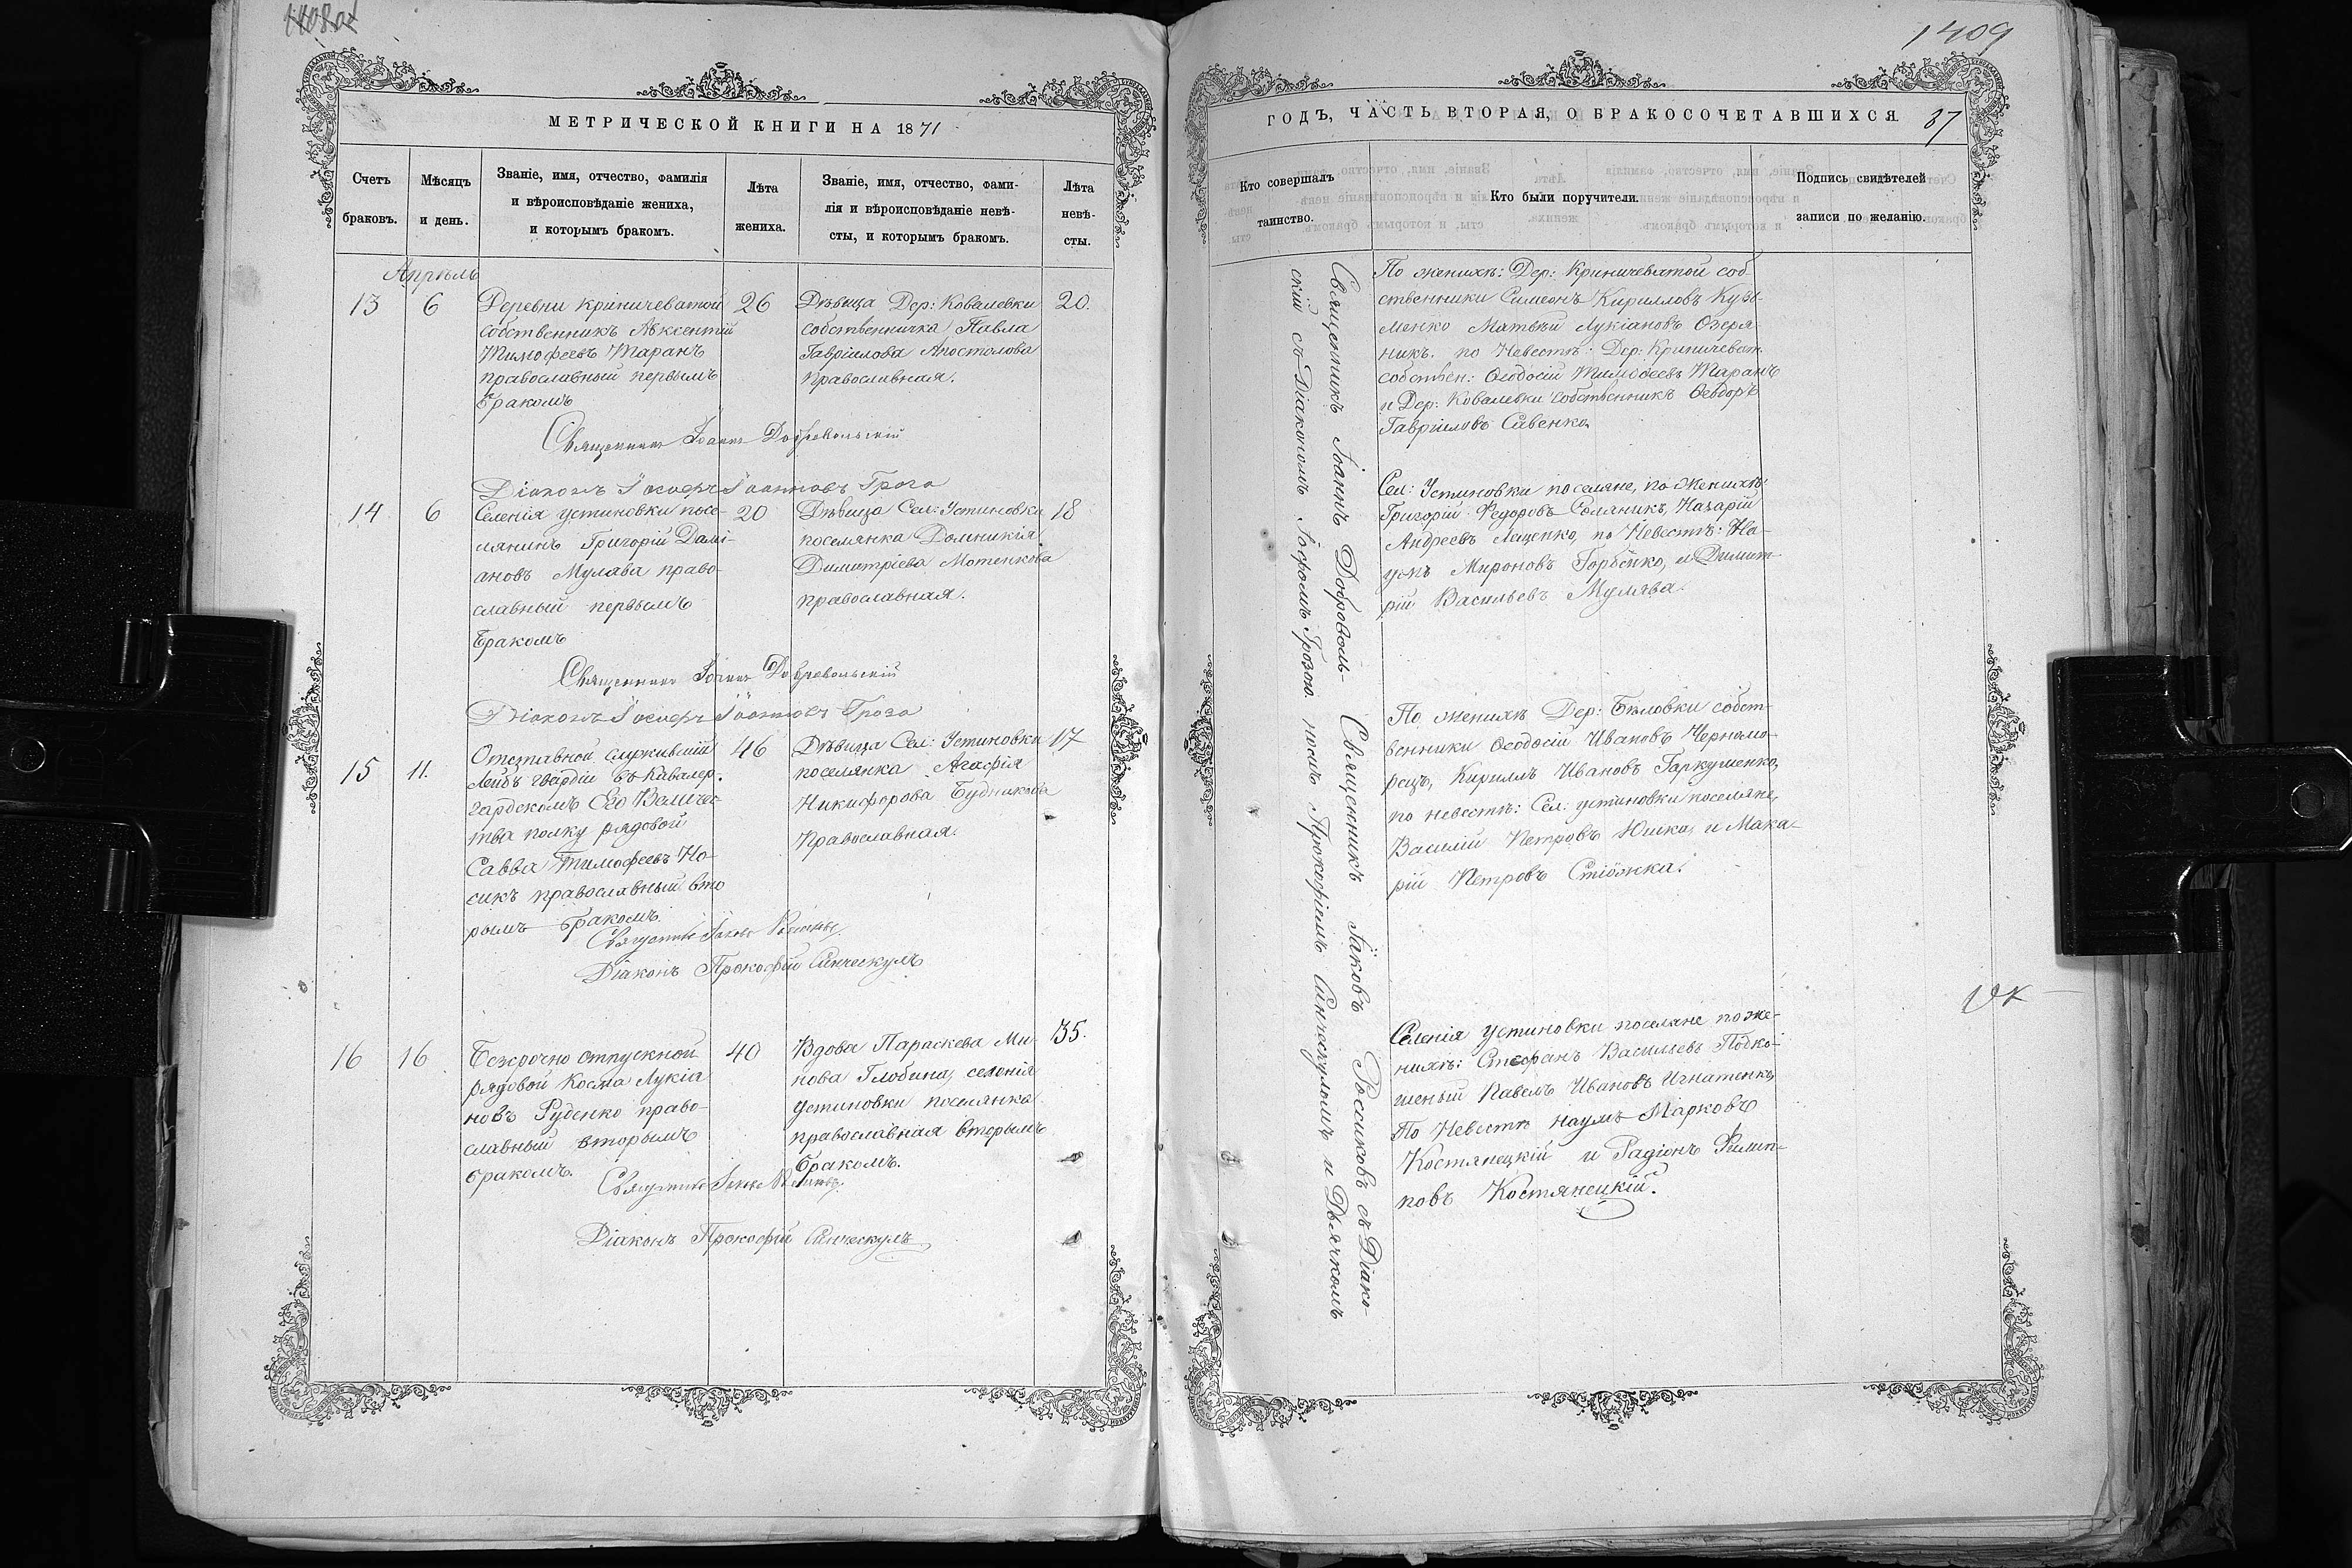 1409
МЕТРИЧЕСКОЙ КНИГИ НА 1871
Счетъ браковъ.
Мѣсяцъ и день.
Званіе, имя, отчество, фамилія
и вѣроисповѣданіе жениха,
и которымъ бракомъ.
Лѣта жениха.
Званіе, имя, отчество, фами-
лія и вѣроисповѣданіе невѣ-
сты, и которымъ бракомъ.
Лѣта невѣ-
сты.
Апрѣль
13
6
Деревни Криничеватой
собственникъ Авксентій
Тимофеевъ Таранъ
православный первымъ
бракомъ
26
Дѣвица Дер: Ковалевки
собственничка Павла
Гавріилова Апостолова
православная.
20.
Священникъ Іоаннъ Добровольскій
Діаконъ Іосифъ Іоанновъ Гроза
14
6
Селенія Устиновки посе-
лянинъ Григорій Дамі-
ановъ Мулява право-
славный первымъ
бракомъ
20
Дѣвица Сел: Устиновки
поселянка Домникія
Димитріева Мотенкова
православная.
18
Священникъ Іоаннъ Добровольскій
Діаконъ Іосифъ Іоанновъ Гроза
15
11.
Отставной служившій
Лейбъ гвардіи въ Кавалер-
гардскомъ Его Величес-
тва полку рядовой
Савва Тимофеевъ Но-
сикъ православный вто
рымъ бракомъ.
46
Дѣвица Сел: Устиновки
поселянка Агафія
Никифорова Будникова
Православная.
17
Священникъ Іаковъ Росликовъ
Діаконъ Прокофій Синческулъ
16
16
Безсрочно отпускной
рядовой Косма Лукіа
новъ Руденко право-
славный вторымъ
бракомъ.
40
Вдова Параскева Ми-
нова Глобина, селенія
Устиновки поселянка
православная вторымъ
бракомъ.
35.
Діаконъ Прокофій Синческулъ
ГОДЪ, ЧАСТЬ ВТОРАЯ, О БРАКОСОЧЕТАВШИХСЯ.
37
Кто совершалъ
таинство.
Кто были поручители.
Подпись свидѣтелей
записи по желанію.
Священникъ Іоаннъ Доброволь-
скій съ Діакономъ Іосифомъ Грозою.
Священникъ Іаковъ Росликовъ съ Діако-
номъ Прокофіемъ Синческуломъ и Дьячкомъ
По женихѣ: Дер: Криничеватой соб
ственники Симеонъ Кирилловъ Кузь-
менко Матвѣй Лукіановъ Озеря
никъ. по Невестѣ: Дер: Криничеват.
собствен: Ѳеодосій Тимофеевъ Таранъ
и Дер: Ковалевки собственникъ Ѳеодоръ
Гавріиловъ Савенко.
Сел: Устиновки поселяне, по женихѣ:
Григорій Федоровъ Соляникъ, Назарій
Андреевъ Лещенко, по Невестѣ: На-
умъ Мироновъ Горбенко, и Димит-
рій Васильевъ Мулява.
По женихѣ Дер: Бѣловки собст-
венники Ѳеодосій Ивановъ Черномо-
рецъ, Кириллъ Ивановъ Гаркушенко,
по невестѣ: Сел: Устиновки поселяне,
Василій Петровъ Юшка, и Мака-
рій Петровъ
Селенія Устиновки поселяне по же-
нихѣ: Стефанъ Васильевъ Подко-
шеный Павелъ Ивановъ Игнатенко,
По Невестѣ Наумъ Марковъ
Костянецкій и Радіонъ Филип-
повъ Костянецкій.